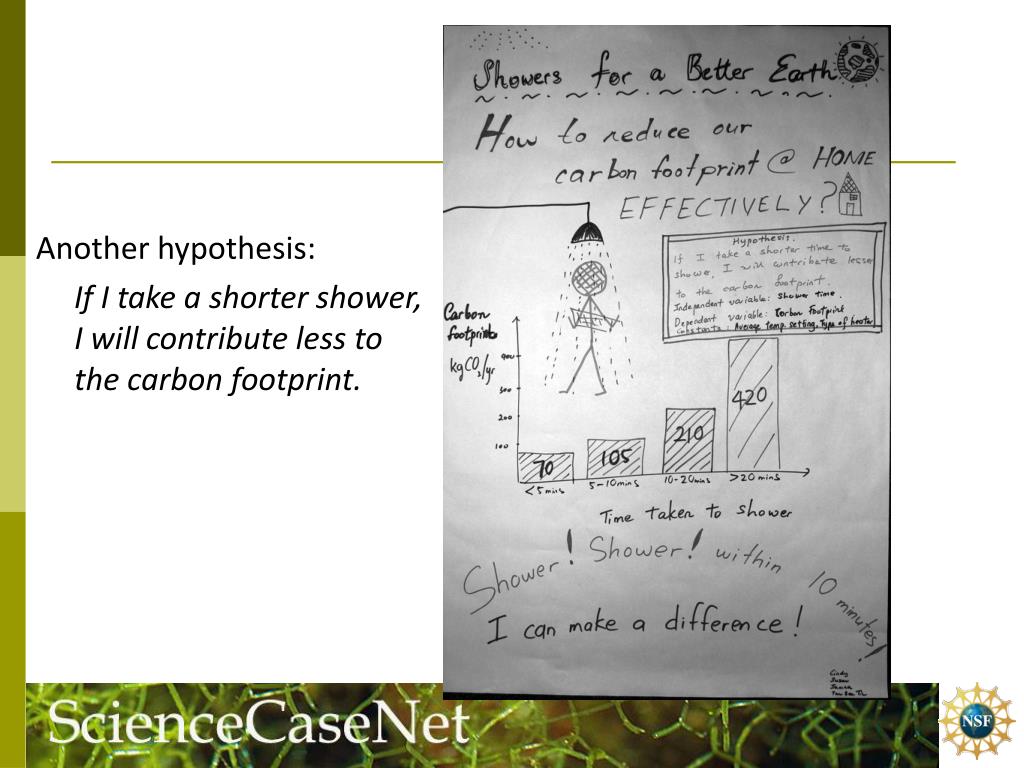 Another hypothesis:
If I take a shorter shower,
I will contribute less to
the carbon footprint.
Showers for a Better Earth
How to reduce our
carbon footprint @ HOME
EFFECTIVELY?
Hypothesis.
If I take a shorter time to
shower, I will contribute lesser
to the carbon footprint.
Independent variable: Shower time.
Dependent variable: Carbon Footprint
Constants: Average temp. setting, Type of heater
Carbon
footprints
kgCO₂/yr
400
300
200
100
70
105
210
420
<5 mins
5-10 mins
10-20 mins
>20 mins
Time taken to shower
Shower! Shower! within 10 minutes!
I can make a difference!
Cindy
Susan
ScienceCaseNet
NSF